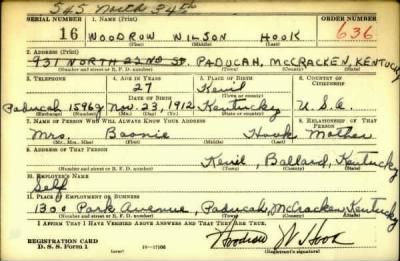 545 North 34th
SERIAL NUMBER 1. NAME (Print) ORDER NUMBER
16 WOODROW WILSON HOOK 636
(First) (Middle) (Last)
2. ADDRESS (Print)
931 NORTH 22ND ST. PADUCAH, MCCRACKEN, KENTUCKY
(Number and street or R. F. D. number) (Town) (County) (State)
3. TELEPHONE 4. AGE IN YEARS 5. PLACE OF BIRTH 6. COUNTRY OF CITIZENSHIP
27 Kevil
DATE OF BIRTH (Town or county)
Paducah 1596J Nov. 23, 1912 Kentucky U.S.A.
(Exchange) (Number) (Mo.) (Day) (Yr.) (State or country)
7. NAME OF PERSON WHO WILL ALWAYS KNOW YOUR ADDRESS 8. RELATIONSHIP OF THAT PERSON
Mrs. Boonie Hook Mother
(Mr., Mrs., Miss) (First) (Middle) (Last)
9. ADDRESS OF THAT PERSON
Kevil, Ballard, Kentucky
(Number and street or R. F. D. number) (Town) (County) (State)
10. EMPLOYER'S NAME
Self
11. PLACE OF EMPLOYMENT OR BUSINESS
1300 Park Avenue, Paducah, McCracken, Kentucky
(Number and street or R. F. D. number) (Town) (County) (State)
I AFFIRM THAT I HAVE VERIFIED ABOVE ANSWERS AND THAT THEY ARE TRUE.
REGISTRATION CARD
D. S. S. Form 1 (over) 16—17105 Woodrow W Hook
(Registrant's signature)